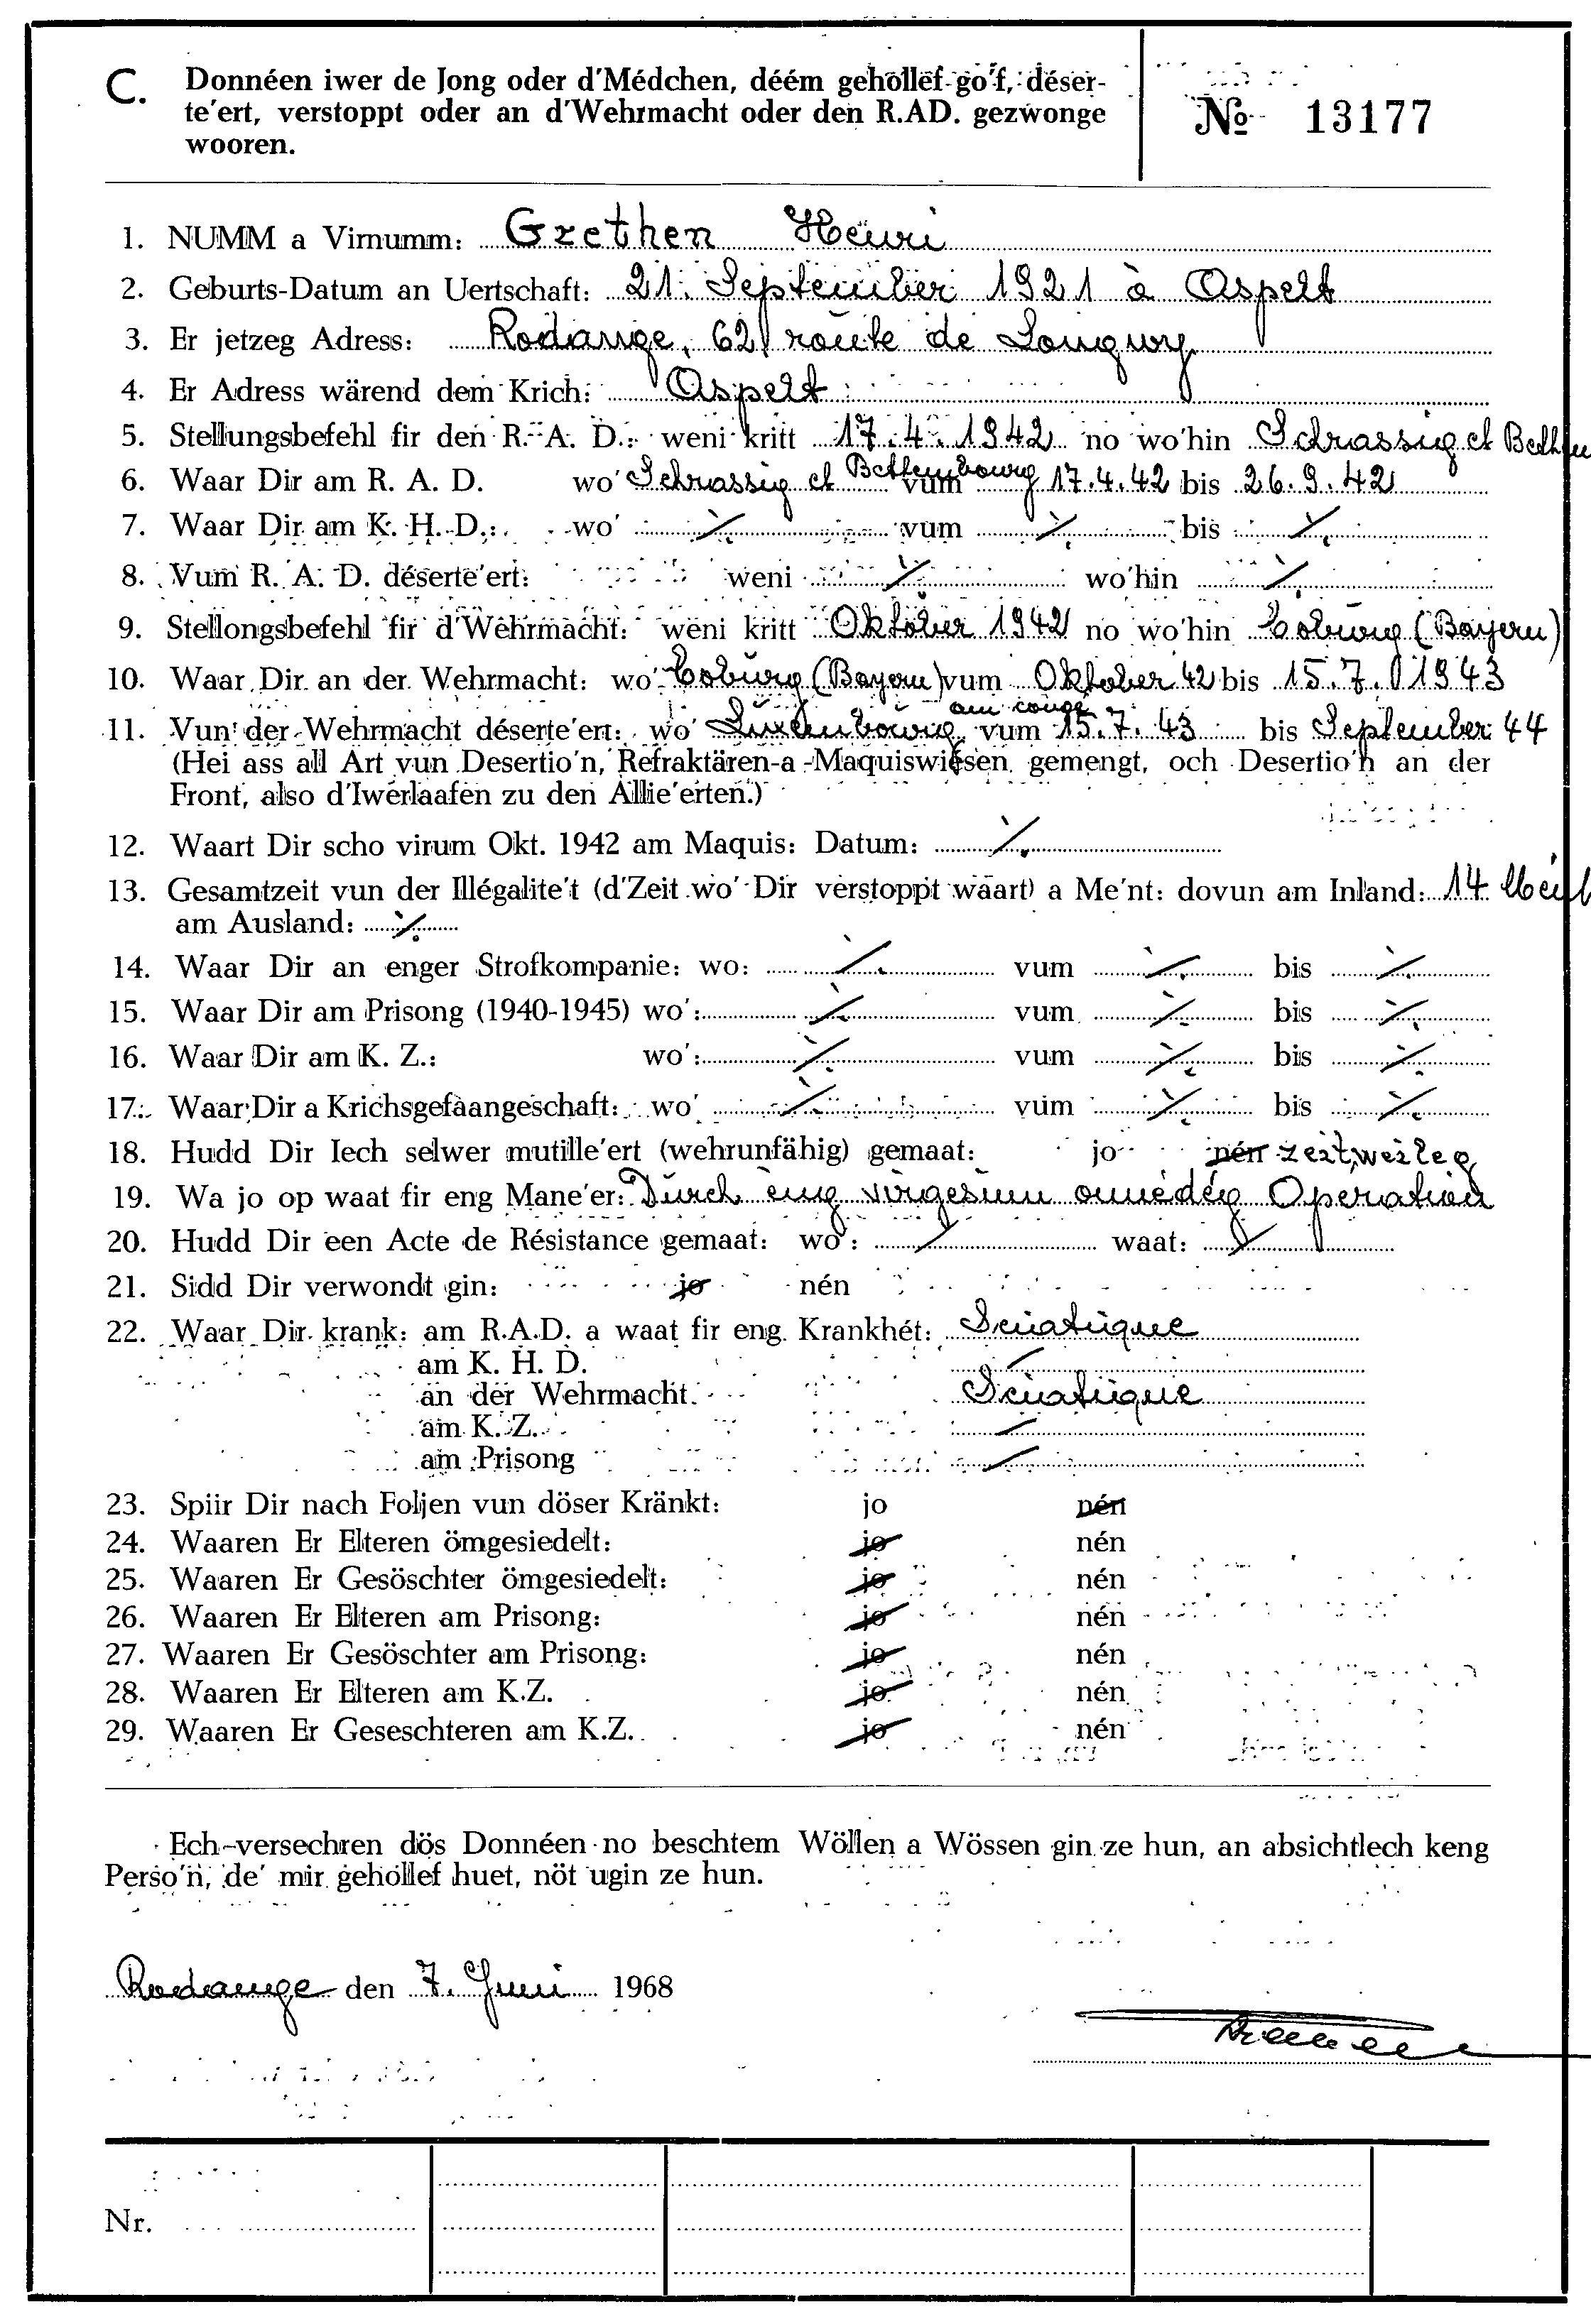 C. Donnéen iwer de Jong oder d'Médchen, déém gehollëf go'f, déser-
te'ert, verstoppt oder an d'Wehrmacht oder den R.AD. gezwonge
wooren.
No 13177
1. NUMM a Virnumm: Grethen Henri
2. Geburts-Datum an Uertschaft: 21. September 1921 à Aspelt
3. Er jetzeg Adress: Rodange, 62 route de Longwy
4. Er Adress wärend dem Krich: Aspelt
5. Stellungsbefehl fir den R. A. D.: weni kritt 17.4.1942 no wo'hin Schrassig et
6. Waar Dir am R. A. D. wo' Schrassig et Bettembourg vum 17.4.42 bis 26.9.42
7. Waar Dir am K. H. D.: wo' ./. vum ./. bis ./.
8. Vum R. A. D. déserte'ert: weni ./. wo'hin ./.
9. Stellongsbefehl fir d'Wehrmacht: weni kritt Oktober 1942 no wo'hin Coburg (Bayern)
10. Waar Dir an der Wehrmacht: wo' Coburg (Bayern) vum Oktober 42 bis 15.7.1943
am congé
11. Vun der Wehrmacht déserte'ert: wo' Luxembourg vum 15.7.43 bis September 44
(Hei ass all Art vun Desertio'n, Refraktären-a -Maquiswiesen gemengt, och Desertio'n an der
Front, also d'Iwerlaafen zu den Allie'erten.)
12. Waart Dir scho virum Okt. 1942 am Maquis: Datum: ./.
13. Gesamtzeit vun der Illégalite't (d'Zeit wo' Dir verstoppt waart) a Me'nt: dovun am Inland: 14
am Ausland: ./.
14. Waar Dir an enger Strofkompanie: wo: ./. vum ./. bis ./.
15. Waar Dir am Prisong (1940-1945) wo': ./. vum ./. bis ./.
16. Waar Dir am K. Z.: wo': ./. vum ./. bis ./.
17. Waar Dir a Krichsgefaangeschaft: wo' ./. vum ./. bis ./.
18. Hudd Dir Iech selwer mutille'ert (wehrunfähig) gemaat: jo nén zeitweileg
19. Wa jo op waat fir eng Mane'er: Durch eng virgesinn onnédég Operatioun
20. Hudd Dir een Acte de Résistance gemaat: wo': / waat: /
21. Sidd Dir verwondt gin: jo nén
22. Waar Dir krank: am R.A.D. a waat fir eng Krankhét: Sciatique
am K. H. D. /
an der Wehrmacht. Sciatique
am K. Z. /
am Prisong /
23. Spiir Dir nach Foljen vun döser Kränkt: jo nén
24. Waaren Er Elteren ömgesiedelt: jo nén
25. Waaren Er Gesöschter ömgesiedelt: jo nén
26. Waaren Er Elteren am Prisong: jo nén
27. Waaren Er Gesöschter am Prisong: jo nén
28. Waaren Er Elteren am K.Z. jo nén
29. Waaren Er Geseschteren am K.Z. jo nén
Ech versechren dös Donnéen no beschtem Wöllen a Wössen gin ze hun, an absichtlech keng
Perso'n, de' mir gehollef huet, nöt ugin ze hun.
Rodange den 7. Juni 1968
Nr.